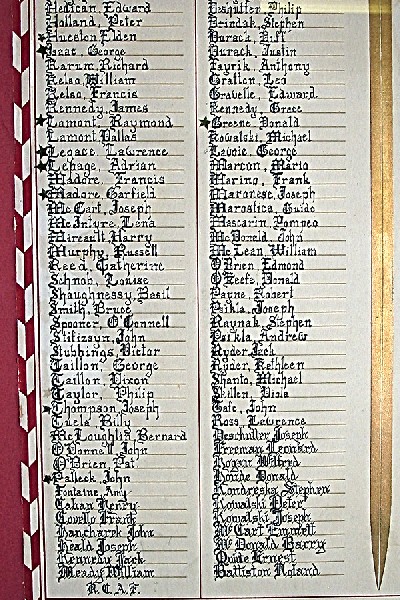 Holland, Peter
Huceson Elden
Isaac, George
Karum, Richard
Kelso, William
Kelso, Francis
Kennedy, James
Lamont, Raymond
Lamont Dallas
Leonce, Lawrence
Lepage, Adrian
Madore, Francis
Madore, Garfield
McCart, Joseph
McIntyre, Lena
Mireault, Harry
Murphy, Russell
Reed, Catherine
Schnob, Louise
Shaughnessy, Basil
Smith, Bruce
Spooner, O'Connell
Stitizyn, John
Stubbings, Victor
Taillon, George
Taillon, Dixon
Taylor, Philip
Thompson, Joseph
Billy
McLoughlin, Bernard
O'Donnell, John
O'Brien, Pat
Palleck, John
Fontaine, Amy
Henry
Covello Frank
Hanchareh John
Heald Joseph
Kennedy Jack
Meady William
R.C.A.F.
Philip
Stephen
Burack,
Burack, Justin
Fayrik, Anthony
Grattan, Leo
Gravelle, Edward
Kennedy, Grace
Greene, Donald
Kowalski, Michael
Lavoie, George
Marcon, Mario
Marino, Frank
Maronese, Joseph
Marostica, Guido
Mascarin, Pompeo
McDonald, John
McLean, William
O'Brien, Edmond
O'Keefe, Donald
Payne, Robert
Psikla, Joseph
Raynak, Stephen
Psikla, Andrew
Ryder, Jack
Ryder, Kathleen
Shanto, Michael
Skillen, Viola
John
Ross, Lawrence
Deschuller, Joseph
Freeman Leonard
Wilfred
Donald
Kandreska, Stephen
Kowalski Peter
Kowalski Joseph
McCart Emmett
McDonald Barry
Quide Ernest
Battiston Roland